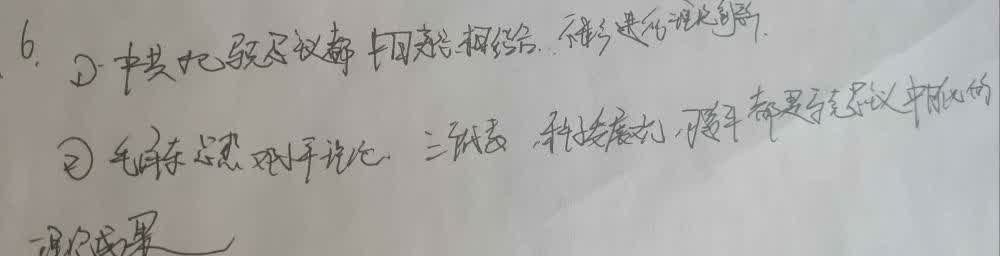 6. ① 中共把马克思主义都中国实际相结合..不断进行理论创新.
② 毛泽东思想 邓小平理论. 三个代表 .科学发展观, 都是马克思主义中国化的
理论成果